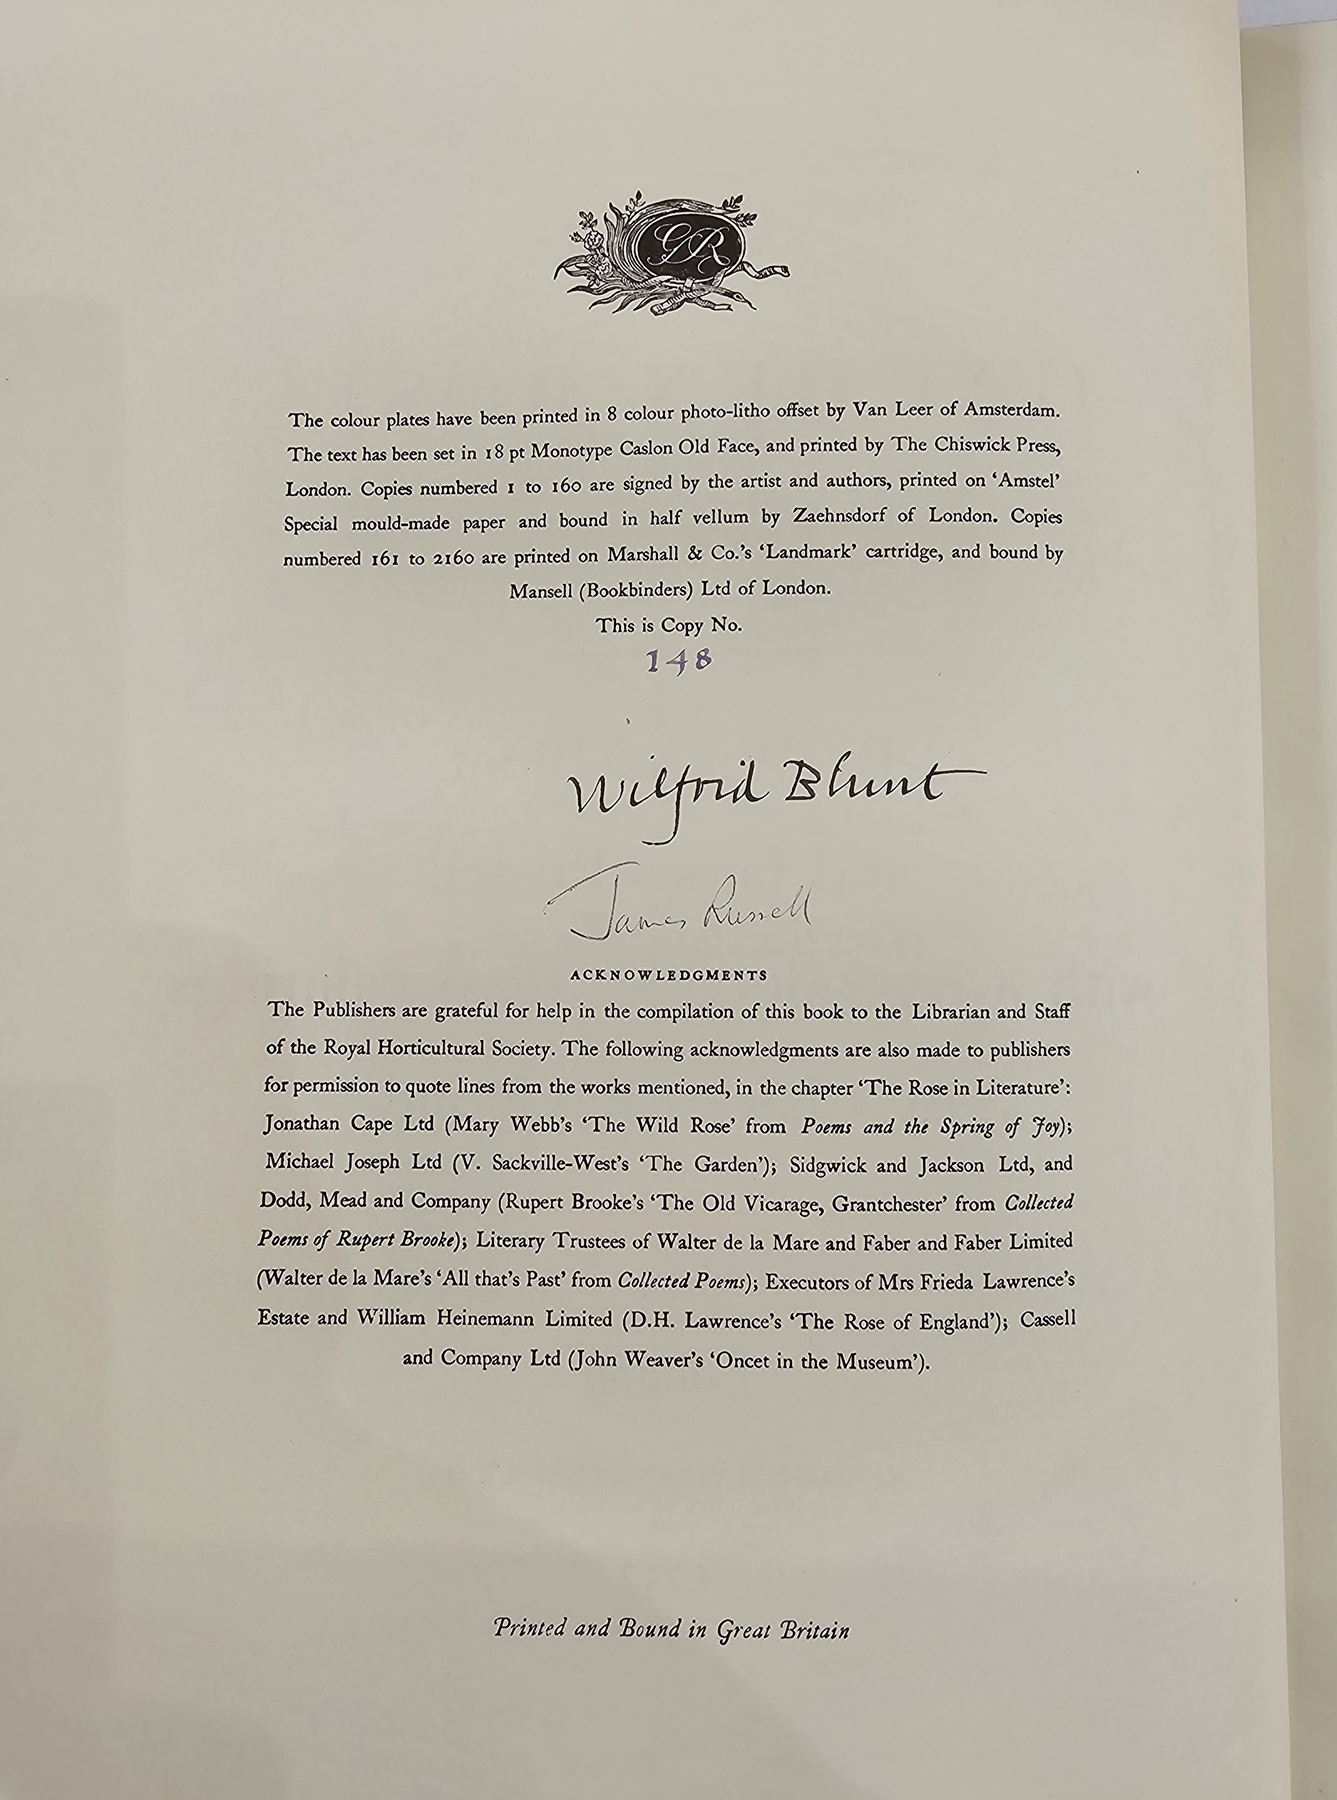 GR
The colour plates have been printed in 8 colour photo-litho offset by Van Leer of Amsterdam.
The text has been set in 18 pt Monotype Caslon Old Face, and printed by The Chiswick Press,
London. Copies numbered 1 to 160 are signed by the artist and authors, printed on ‘Amstel’
Special mould-made paper and bound in half vellum by Zaehnsdorf of London. Copies
numbered 161 to 2160 are printed on Marshall & Co.’s ‘Landmark’ cartridge, and bound by
Mansell (Bookbinders) Ltd of London.
This is Copy No.
148
Wilfrid Blunt
James Russell
ACKNOWLEDGMENTS
The Publishers are grateful for help in the compilation of this book to the Librarian and Staff
of the Royal Horticultural Society. The following acknowledgments are also made to publishers
for permission to quote lines from the works mentioned, in the chapter ‘The Rose in Literature’:
Jonathan Cape Ltd (Mary Webb’s ‘The Wild Rose’ from Poems and the Spring of Joy);
Michael Joseph Ltd (V. Sackville-West’s ‘The Garden’); Sidgwick and Jackson Ltd, and
Dodd, Mead and Company (Rupert Brooke’s ‘The Old Vicarage, Grantchester’ from Collected
Poems of Rupert Brooke); Literary Trustees of Walter de la Mare and Faber and Faber Limited
(Walter de la Mare’s ‘All that’s Past’ from Collected Poems); Executors of Mrs Frieda Lawrence’s
Estate and William Heinemann Limited (D.H. Lawrence’s ‘The Rose of England’); Cassell
and Company Ltd (John Weaver’s ‘Oncet in the Museum’).
Printed and Bound in Great Britain